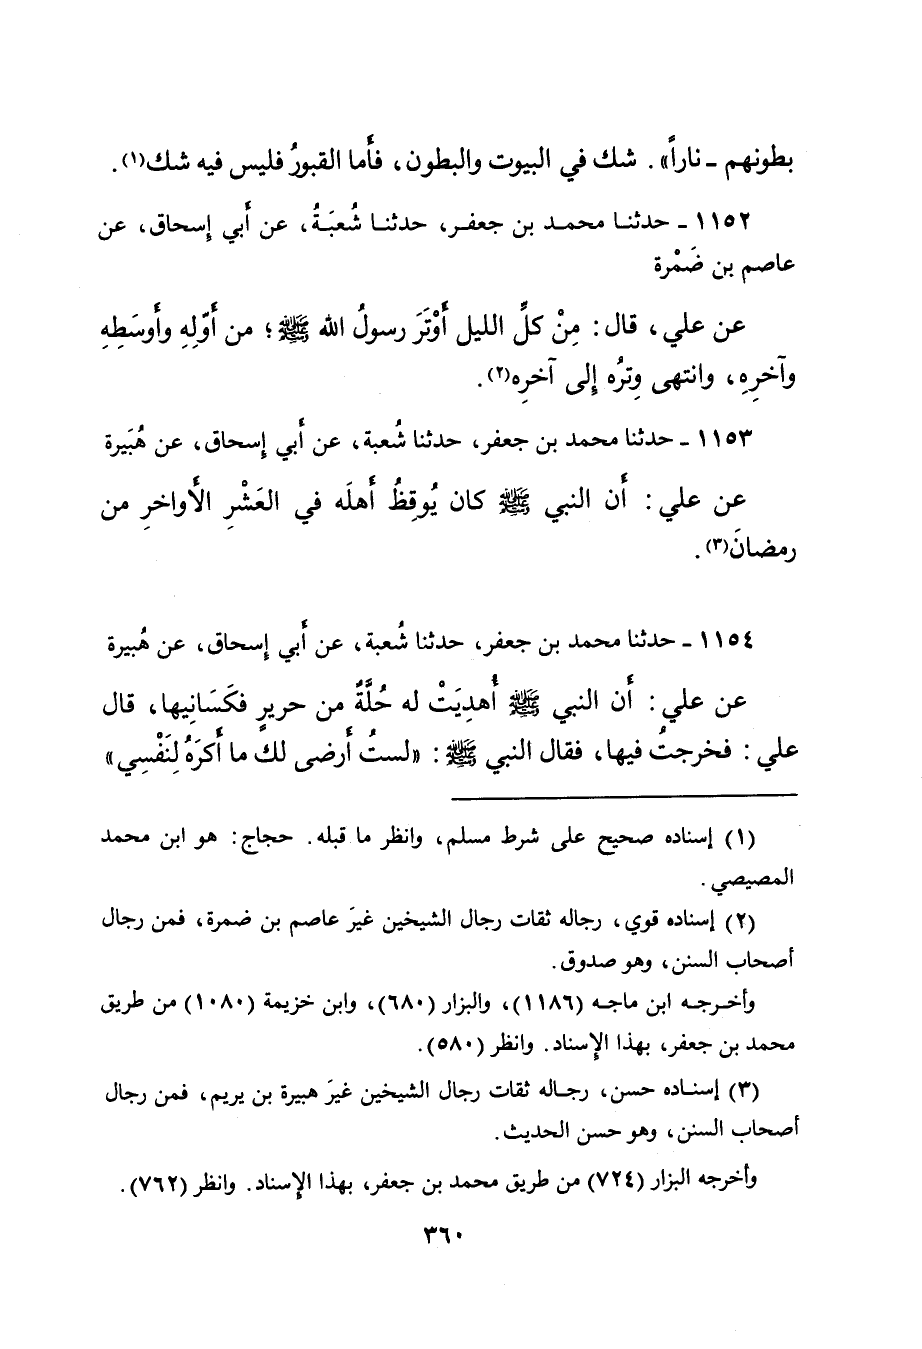 بطونهم ـ ناراً» . شك في البيوت والبطون، فأَما القبورُ فليس فيه شك(١).
١١٥٢ ـ حدثنا محمد بن جعفر، حدثنا شُعبَةُ، عن أَبي إِسحاق، عن
عاصم بن ضَمْرة
عن علي، قال: مِنْ كلِّ الليل أَوْتَرَ رسولُ الله ﷺ؛ من أَوّلِهِ وأَوسَطِهِ
وآخرِهِ، وانتهى وِترُه إِلى آخرِه(٢).
١١٥٣ ـ حدثنا محمد بن جعفر، حدثنا شُعبة، عن أَبي إِسحاق، عن هُبَيرة
عن علي: أَن النبي ﷺ كان يُوقِظُ أَهلَه في العَشْرِ الأَواخرِ من
رمضانَ(٣).
١١٥٤ ـ حدثنا محمد بن جعفر، حدثنا شُعبة، عن أَبي إِسحاق، عن هُبيرة
عن علي: أَن النبي ﷺ أُهدِيَتْ له حُلَّةٌ من حريرٍ فكَسَانِيها، قال
علي: فخرجتُ فيها، فقال النبي ﷺ: «لستُ أَرضى لك ما أَكرَهُ لِنَفْسِي»
(١) إسناده صحيح على شرط مسلم، وانظر ما قبله. حجاج: هو ابن محمد
المصيصي.
(٢) إسناده قوي، رجاله ثقات رجال الشيخين غيرَ عاصم بن ضمرة، فمن رجال
أصحاب السنن، وهو صدوق.
وأخرجه ابن ماجه (١١٨٦)، والبزار (٦٨٠)، وابن خزيمة (١٠٨٠) من طريق
محمد بن جعفر، بهذا الإِسناد. وانظر (٥٨٠).
(٣) إسناده حسن، رجاله ثقات رجال الشيخين غيرَ هبيرة بن يريم، فمن رجال
أصحاب السنن، وهو حسن الحديث.
وأخرجه البزار (٧٢٤) من طريق محمد بن جعفر، بهذا الإِسناد. وانظر (٧٦٢).
٣٦٠